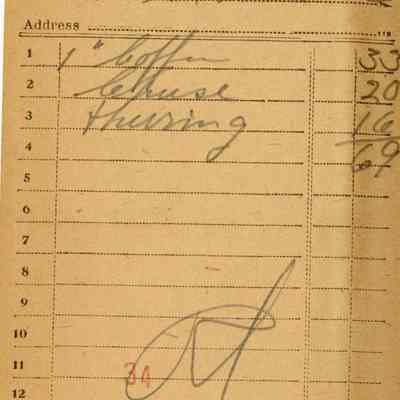 Address
1 1" Coffee 33
2 Cheese 20
3 Herring 16
4 69
5
6
7
8
9
10
11 34
12